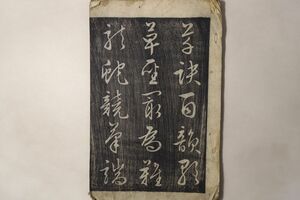 草訣百韻歌
草聖最為難
龍蛇競筆端